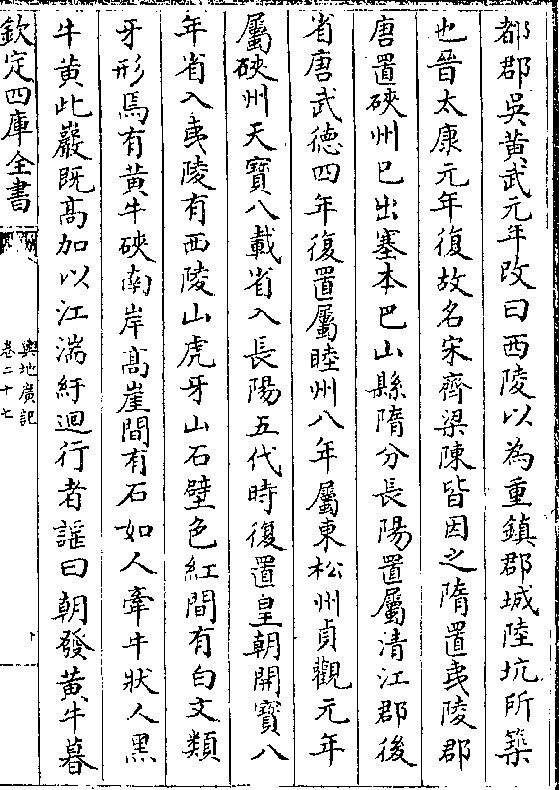 都郡吳黃武元年改曰西陵以為重鎮郡城陸坑所築
也晉太康元年復故名宋齊梁陳皆因之隋置夷陵郡
唐置硤州巴出塞本巴山縣隋分長陽置屬清江郡後
省唐武德四年復置屬睦州八年屬東松州貞觀元年
屬硤州天寶八載省入長陽五代時復置皇朝開寶八
年省入夷陵有西陵山虎牙山石壁色紅間有白文類
牙形焉有黃牛硤南岸髙崖間有石如人牽牛狀人黑
牛黃此巖既髙加以江湍紆迴行者謡曰朝發黃牛暮
欽定四庫全書
輿地廣記
卷二十七